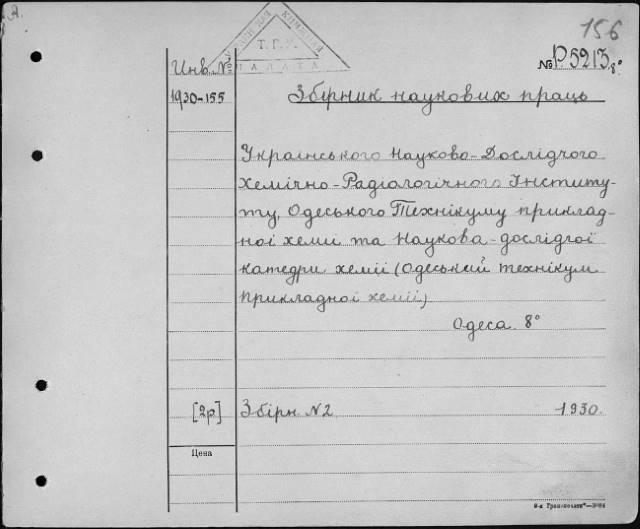 156
КНИЖНАЯ
Т.Г.У.
ПАЛАТА
№ Р.5213 8°
Инв. №
1930-155
Збірник наукових праць
Українського Науково-Дослідчого
Хемічно-Радіологічного Інститу-
ту, Одеського Технікуму приклад-
ної хемії та Наукова-дослідчої
катедри хемії (Одеський технікум
прикладної хемії)
Одеса 8°
[2р]
Збірн. №2
1930.
Цена